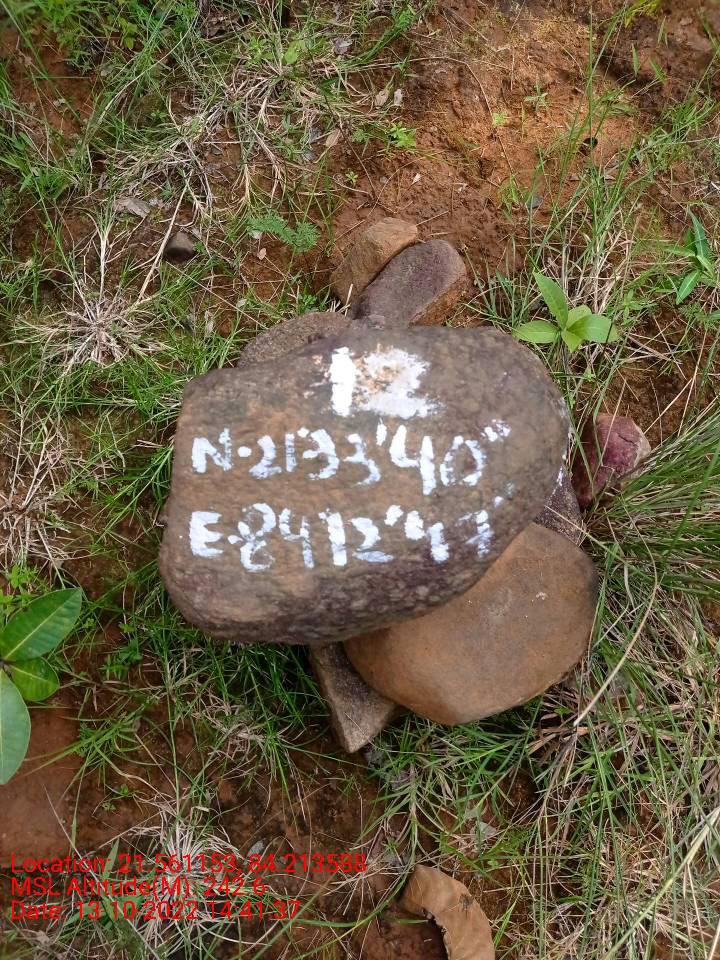 12
N-21°33'40"
E-84°12'47"
Location: 21.561153,84.213588
MSL Altitude(M): 242.6
Date: 13-10-2022 14:41:37